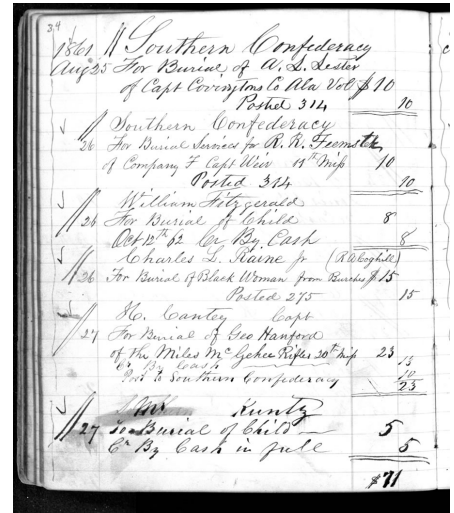 34
1861 // Southern Confederacy
Aug 25 For Burial of A. L. Lester
of Capt Covingtons Co Ala Vol $ 10
Posted 314 10
Southern Confederacy
26 For Burial Services for R. R. Feemster
of Company F Capt Weir 11th Miss 10
Posted 314 10
William Fitzgerald
26 For Burial of Child 8
Oct 12th 62 Cr By Cash 8
Charles L. Raine Jr (R A Coghill)
26 For Burial of Black Woman from Burches $ 15
Posted 275 15
H. Cantey Capt
27 For Burial of Geo Hanford
of the Miles McGehee Rifles 20th Miss 23
Cr By Cash 13
Post to Southern Confederacy 10
23
Kuntz
27 To Burial of Child 5
Cr By Cash in full 5
$ 71